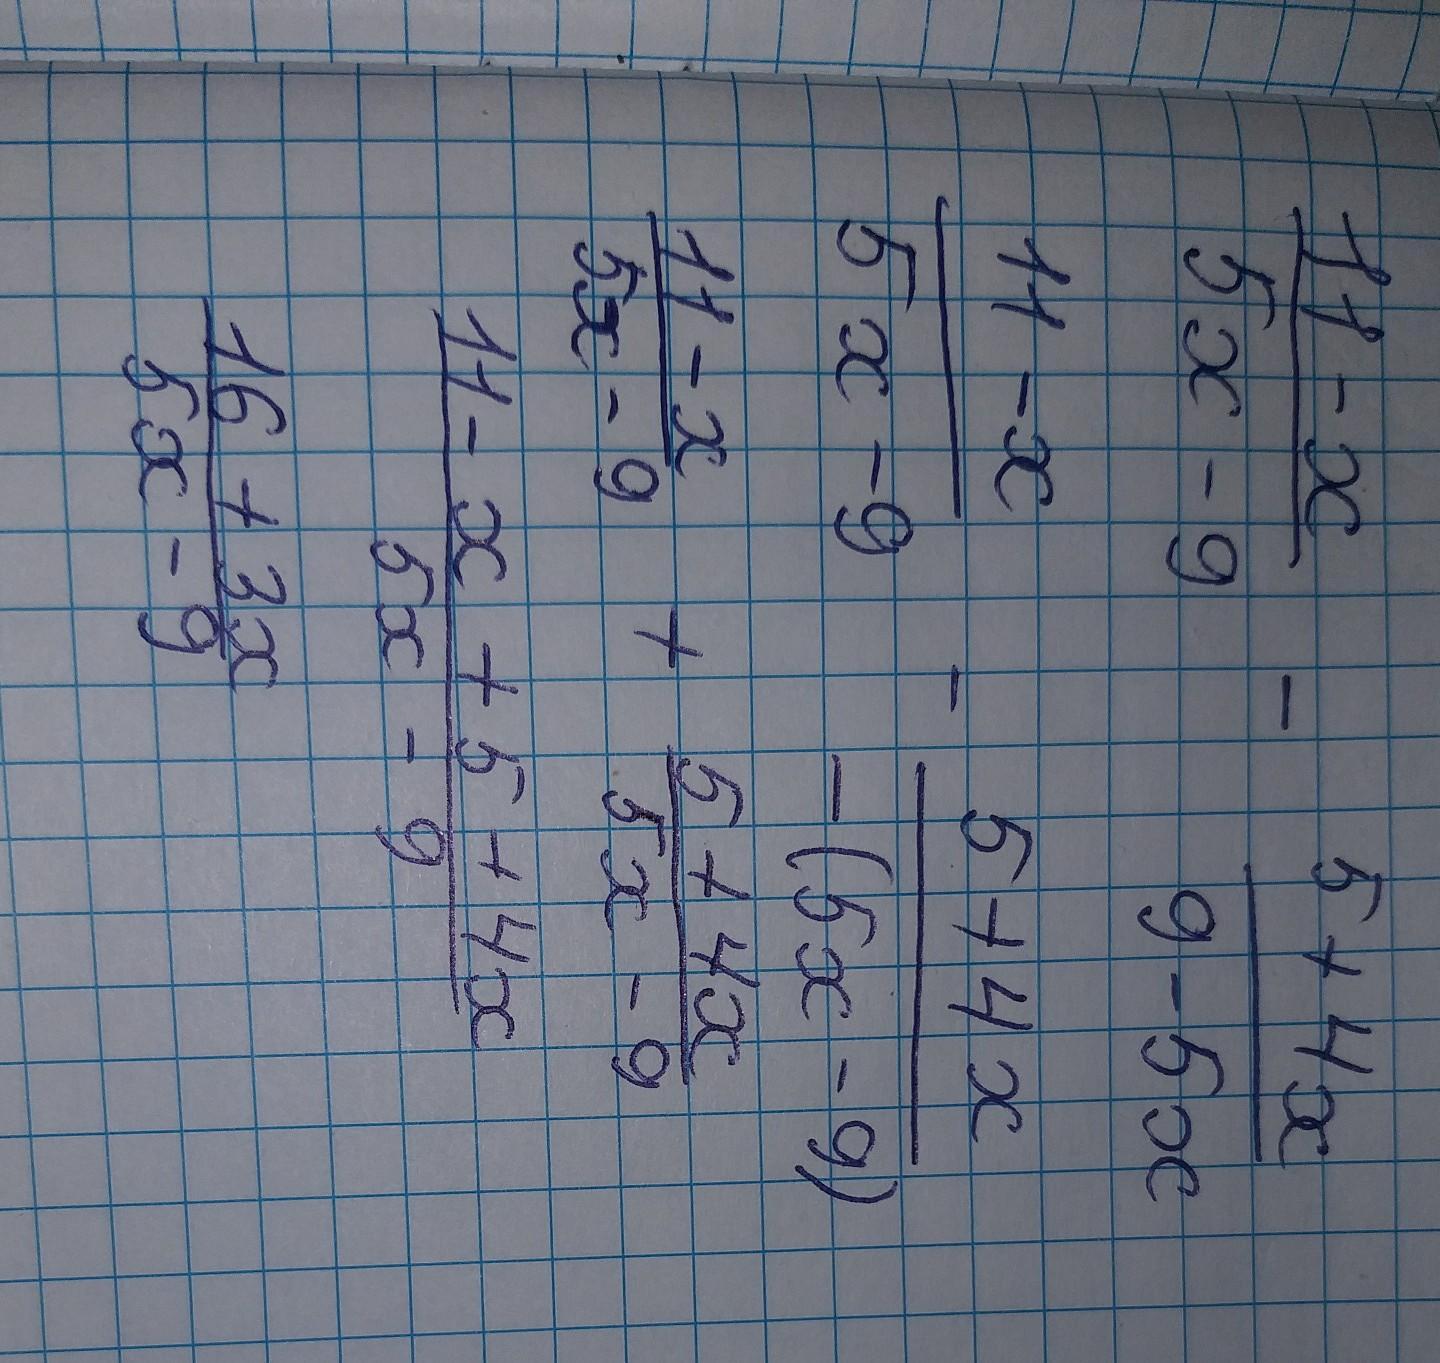 11 - x / 5x - 9 - 5 + 4x / 9 - 5x
11 - x / 5x - 9 - 5 + 4x / -(5x - 9)
11 - x / 5x - 9 + 5 + 4x / 5x - 9
11 - x + 5 + 4x / 5x - 9
16 + 3x / 5x - 9